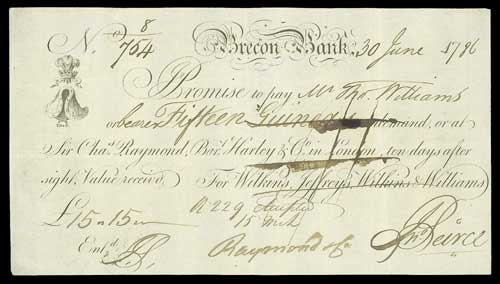 No 8/754 Brecon Bank, 30 June 1796
Promise to pay Mr. Tho. Williams
or bearer Fifteen Guineas demand, or at
Sir Chas. Raymond, Bart. Harley & Co. in London, ten days after
sight, Value received, For Wilkins, Jeffreys, Wilkins & Williams
£15 " 15
A 229
15
Entd. Raymond & Co. Jno. Peirce